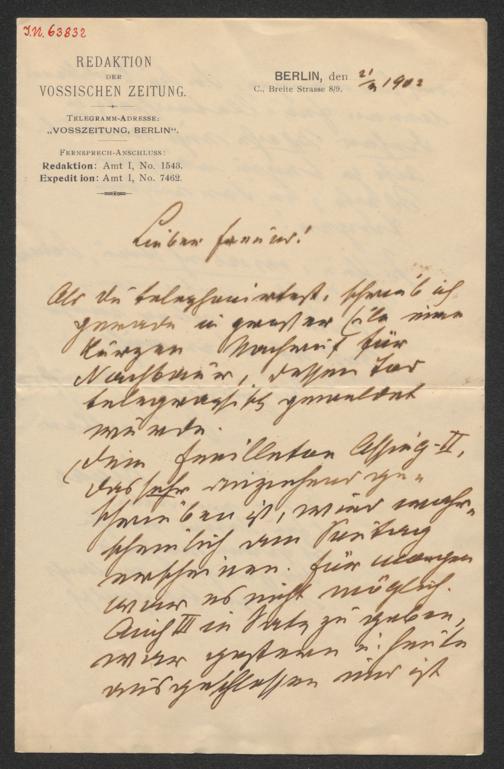 I.N. 63832
REDAKTION
DER
VOSSISCHEN ZEITUNG.
TELEGRAMM-ADRESSE:
„VOSSZEITUNG, BERLIN“.
FERNSPRECH-ANSCHLUSS:
Redaktion: Amt I, No. 1543.
Expedition: Amt I, No. 7462.
BERLIN, den 21/3 1902
C., Breite Strasse 8/9.
Lieber Freund!
Als du telephonirtest, schrieb ich
gerade in großer Eile einen
kurzen Nachruf für
Nachbaur, dessen Tod
telegraphisch gemeldet
wurde.
Dein Feuilleton Assing-II,
das sehr anziehend ge-
schrieben ist, wird wahr-
scheinlich am Sontag
erscheinen. Für morgen
war es nicht möglich.
Auch III in Satz zu geben,
war gestern u. heute
ausgeschlossen und ist